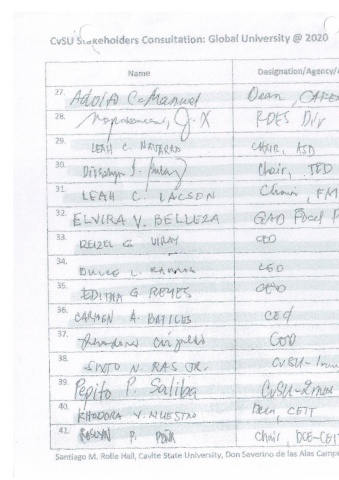 CvSU Stakeholders Consultation: Global University @ 2020
Name Designation/Agency/
27. Adolfo C. Manuel Dean, CAFE
28. RDES Div
29. LEAH C. NAVARRO CHAIR, ASD
30. Chair, TED
31. LEAH C. LACSON Chair, FM
32. ELVIRA V. BELLEZA GAD Focal P
33. REIZEL G VIRAY CEO
34. DULCE L. RAMOS CEO
35. EDITHA G REYES
36. CARMEN A. BATILES CEO
37.
38. SIXTO N. RAS JR. CVSU-Imus
39. Pepito P. Saliba CvSU-Imus
40. RHODORA V. NUESTRO Dean, CEIT
41. ROSLYN P. PEÑA Chair, DCE-CEIT
Santiago M. Rolle Hall, Cavite State University, Don Severino de las Alas Camp